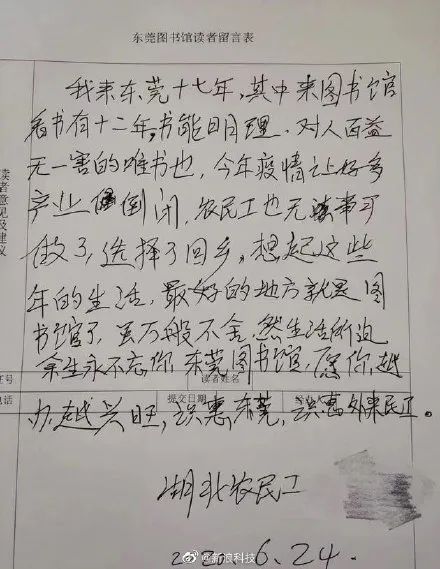 东莞图书馆读者留言表
读者意见及建议
我来东莞十七年，其中来图书馆
看书有十二年，书能明理，对人百益
无一害的唯书也，今年疫情让好多
产业倒闭，农民工也无事可
做了，选择了回乡，想起这些
年的生活，最好的地方就是图
书馆了，虽万般不舍，然生活所迫
余生永不忘你东莞图书馆，愿你越
证号
读者姓名
办越兴旺，识惠东莞，识惠外来民工。
电话
提交日期
湖北农民工
2020.6.24.
@新浪科技